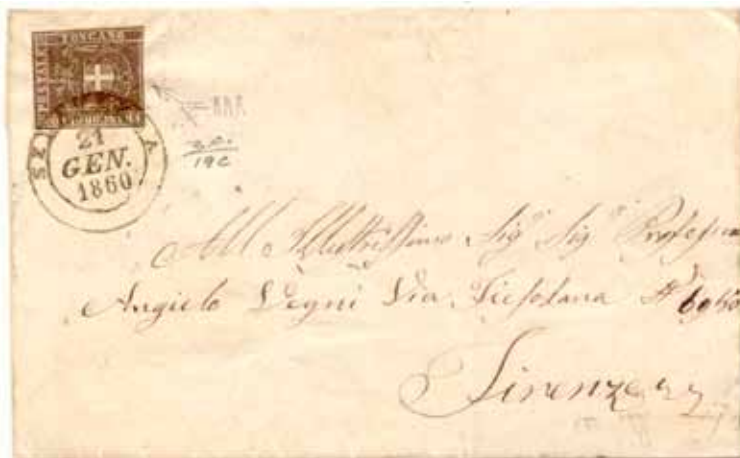 POSTALE TOSCANO
21
GEN.
1860
19c
All Illustrissimo Sig Sig Professor
Angielo Vegni Via Fiesolana N 6960
Firenze